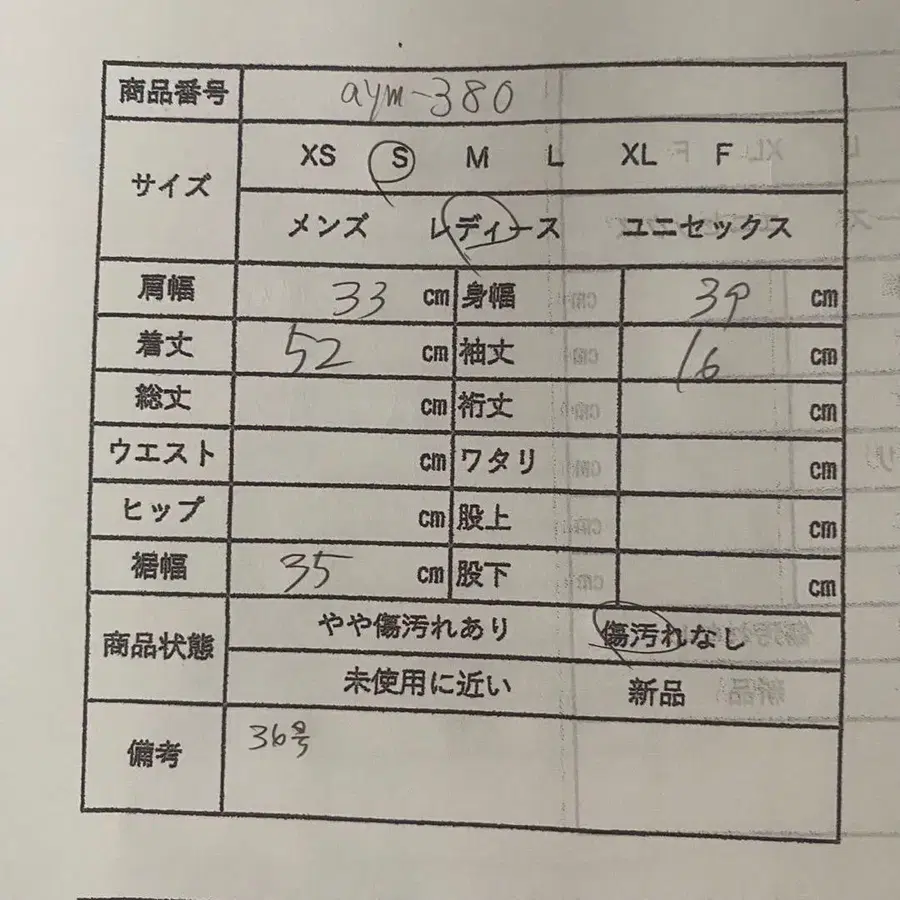 商品番号 aym-380
サイズ XS S M L XL F
メンズ レディース ユニセックス
肩幅 33 cm 身幅 39 cm
着丈 52 cm 袖丈 16 cm
総丈 cm 裄丈 cm
ウエスト cm ワタリ cm
ヒップ cm 股上 cm
裾幅 35 cm 股下 cm
商品状態 やや傷汚れあり 傷汚れなし
未使用に近い 新品
備考 36号